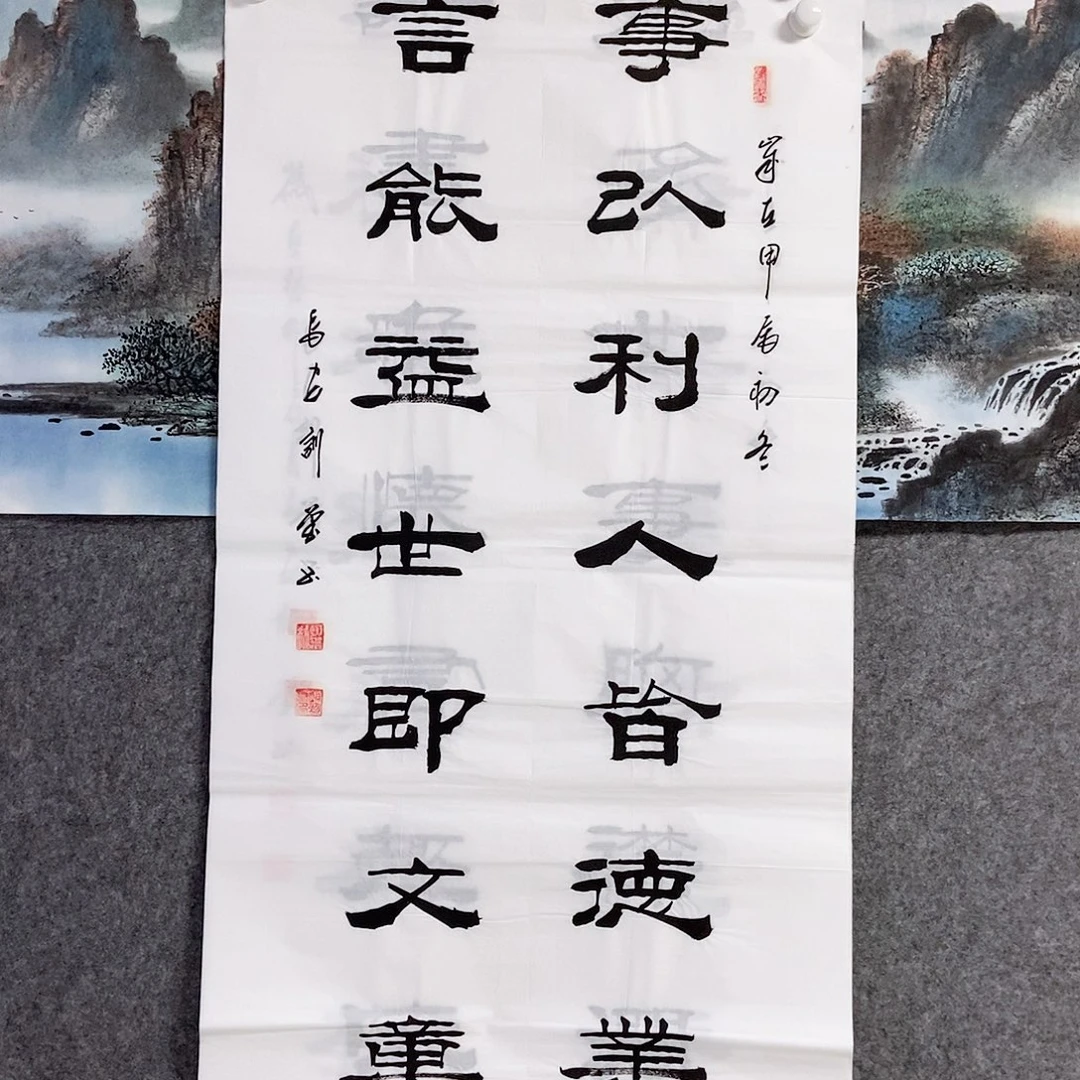 歲在甲辰初冬
事以利人皆德業
言能益世即文章
長安刘书